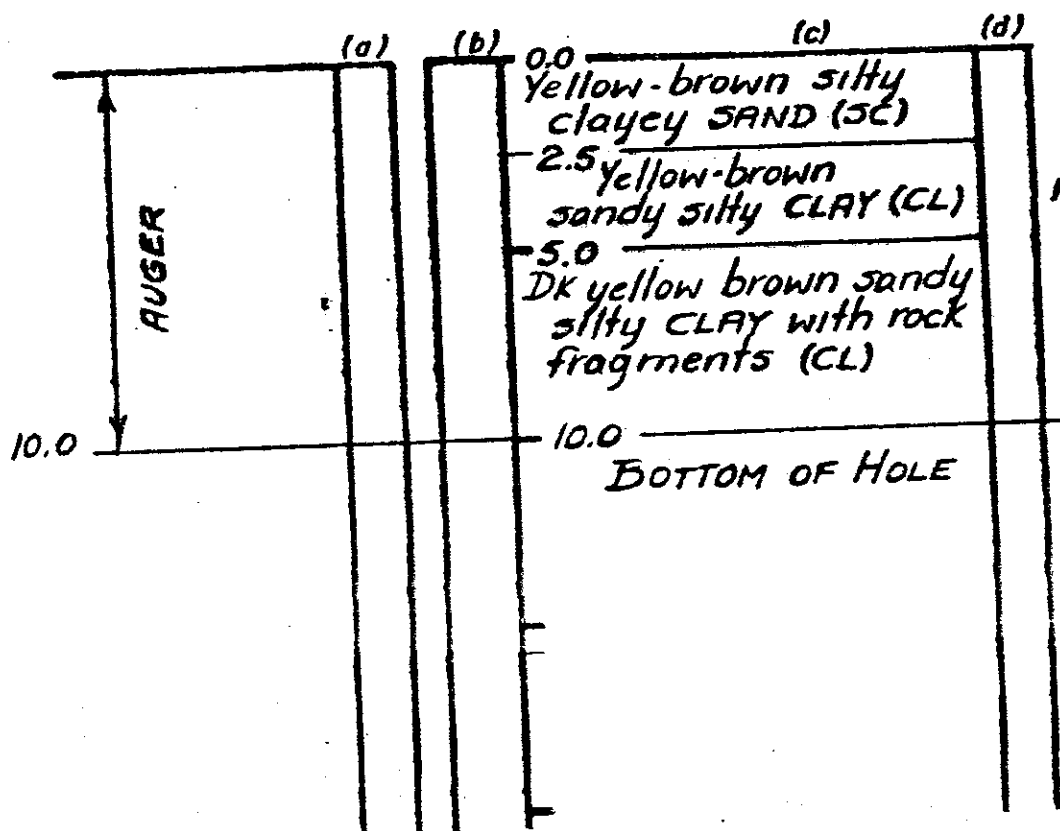 (a) (b) (c) (d)
0.0
Yellow-brown silty
clayey SAND (SC)
2.5
Yellow-brown
sandy silty CLAY (CL)
5.0
DK yellow brown sandy
silty CLAY with rock
fragments (CL)
AUGER
10.0 10.0
BOTTOM OF HOLE